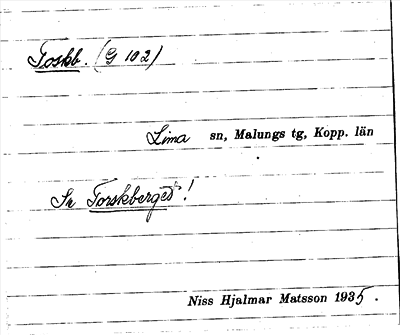 Toskb. (G 102)
Lima sn, Malungs tg, Kopp. län
Se Torskberget!
Niss Hjalmar Matsson 1935.